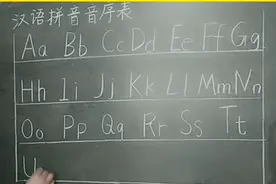 汉语拼音音序表
Aa Bb Cc Dd Ee Ff Gg
Hh Ii Jj Kk Ll Mm Nn
Oo Pp Qq Rr Ss Tt
U